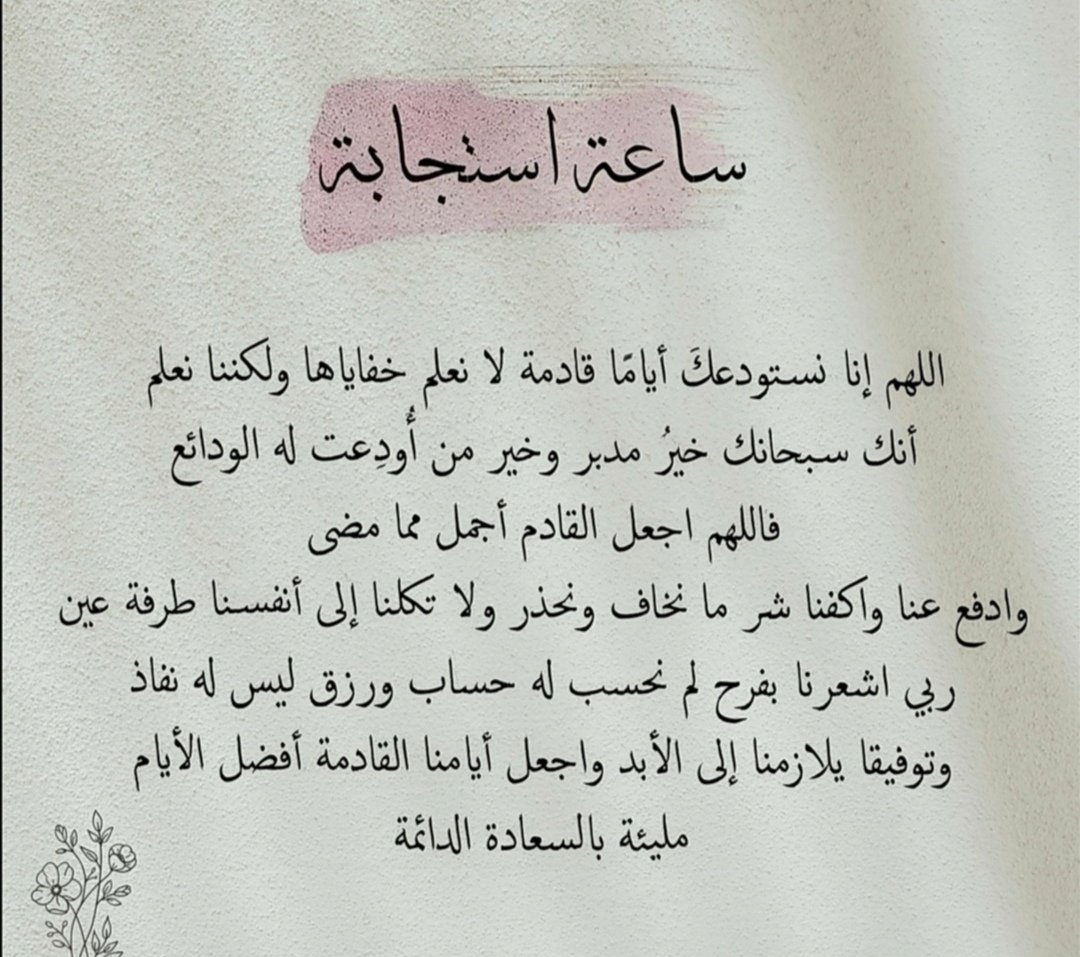 ساعة استجابة
اللهم إنا نستودعكَ أيامًا قادمة لا نعلم خفاياها ولكننا نعلم
أنك سبحانك خيرُ مدبر وخير من أُودِعت له الودائع
فاللهم اجعل القادم أجمل مما مضى
وادفع عنا واكفنا شر ما نخاف ونحذر ولا تكلنا إلى أنفسنا طرفة عين
ربي اشعرنا بفرح لم نحسب له حساب ورزق ليس له نفاذ
وتوفيقا يلازمنا إلى الأبد واجعل أيامنا القادمة أفضل الأيام
مليئة بالسعادة الدائمة